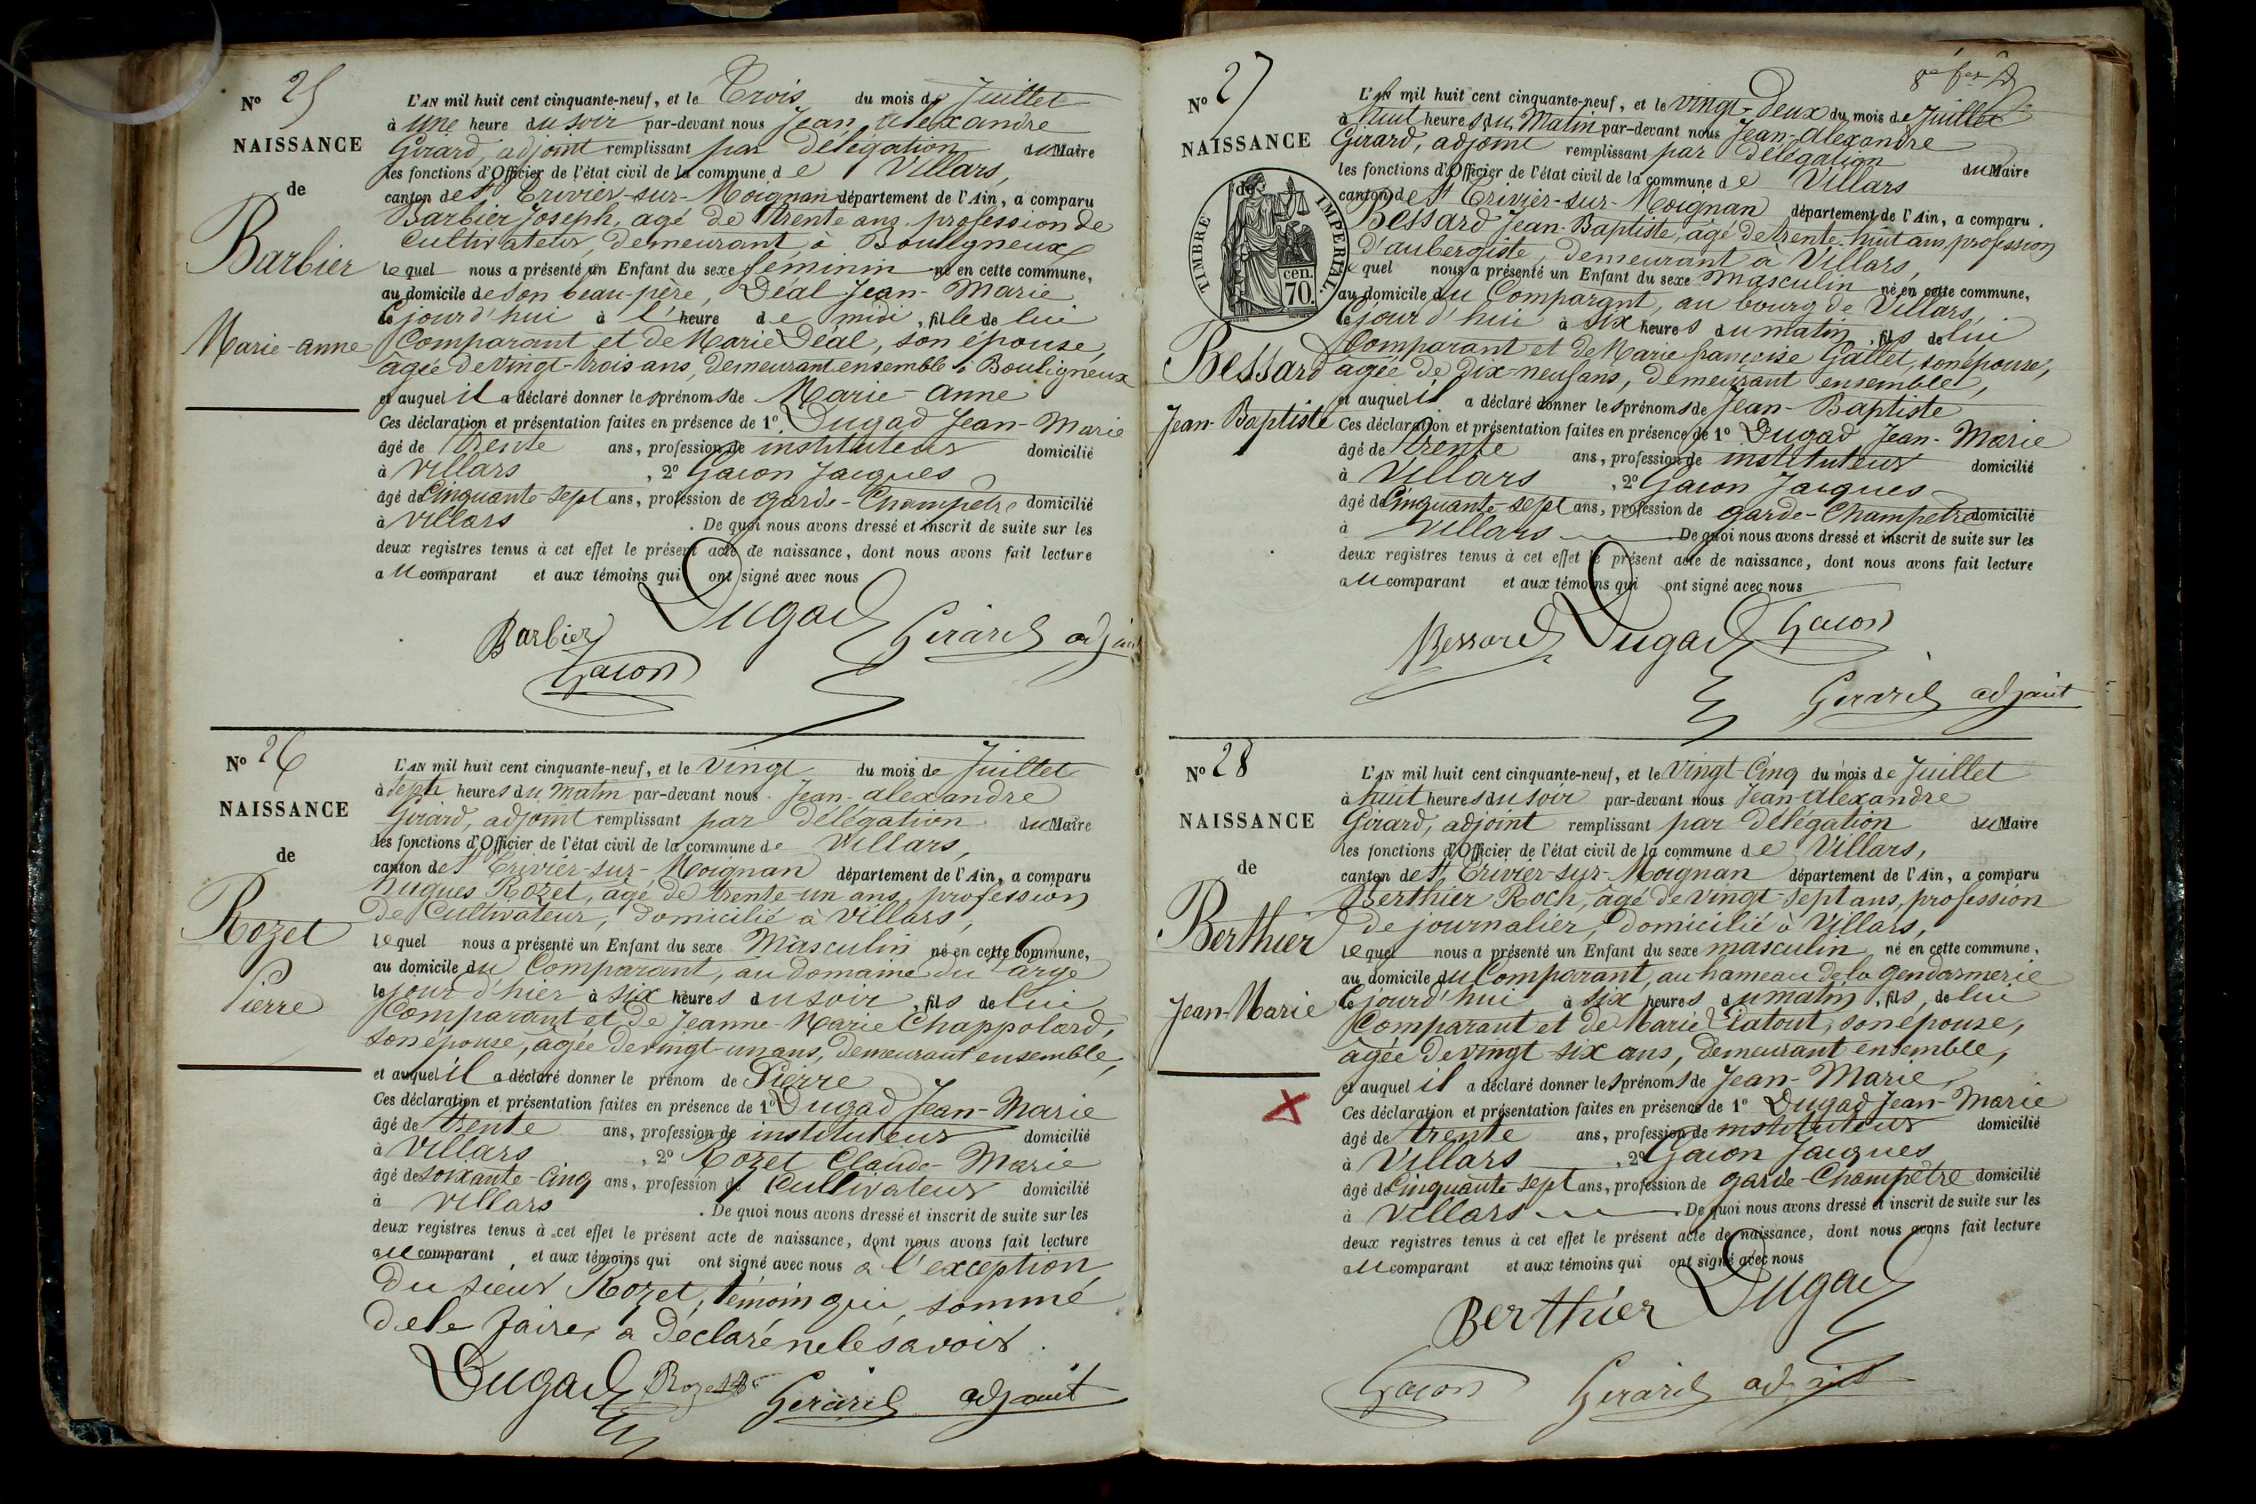 N° 25
NAISSANCE
de
Barbier
Marie-anne
L'AN mil huit cent cinquante-neuf, et le Trois du mois de Juillet
à une heure du soir par-devant nous Jean alexandre
Girard, adjoint remplissant par délégation du Maire
les fonctions d'Officier de l'état civil de la commune de Villars,
canton de St Trivier-sur-Moignan département de l'Ain, a comparu
Barbier Joseph, agé de trente ans, profession de
Cultivateur, demeurant à Bouligneux
lequel nous a présenté un Enfant du sexe féminin né en cette commune,
au domicile de son beau-père, Déal Jean-Marie
le jourd'hui à l'heure de midi, fille de lui
Comparant et de Marie Déal, son épouse,
âgée de vingt-trois ans, demeurant ensemble à Bouligneux
et auquel il a déclaré donner les prénoms de Marie-anne
Ces déclaration et présentation faites en présence de 1° Dugad Jean-Marie
âgé de trente ans, profession de instituteur domicilié
à Villars, 2° Gacon Jacques
âgé de Cinquante-sept ans, profession de garde-Champetre domicilié
à Villars. De quoi nous avons dressé et inscrit de suite sur les
deux registres tenus à cet effet le présent acte de naissance, dont nous avons fait lecture
au comparant et aux témoins qui ont signé avec nous
Barbier Dugad Girard adjoint
Gacon
N° 26
NAISSANCE
de
Rozet
Pierre
L'AN mil huit cent cinquante-neuf, et le Vingt du mois de Juillet
à Septe heures du Matin par-devant nous Jean-alexandre
Girard, adjoint remplissant par délégation du Maire
les fonctions d'Officier de l'état civil de la commune de Villars,
canton de St Trivier-sur-Moignan département de l'Ain, a comparu
Hugues Rozet, agé de trente-un ans, profession
de Cultivateur, domicilié à Villars,
lequel nous a présenté un Enfant du sexe Masculin né en cette commune,
au domicile du Comparant, au domaine du
le jour d'hier à six heures du soir, fils de lui
Comparant et de Jeanne-Marie Chappolard,
son épouse, agée de vingt-un ans, demeurant ensemble,
et auquel il a déclaré donner le prénom de Pierre
Ces déclaration et présentation faites en présence de 1° Dugad Jean-Marie
âgé de trente ans, profession de instituteur domicilié
à Villars, 2° Rozet Claude-Marie
âgé de soixante-Cinq ans, profession de Cultivateur domicilié
à Villars. De quoi nous avons dressé et inscrit de suite sur les
deux registres tenus à cet effet le présent acte de naissance, dont nous avons fait lecture
au comparant et aux témoins qui ont signé avec nous à l'exception
du sieur Rozet, témoin qui, sommé
de le faire, a déclaré ne le savoir.
Dugad Rozet Girard adjoint
N° 27
NAISSANCE
de
TIMBRE IMPERIAL
70 cen.
Bessard
Jean-Baptiste
L'AN mil huit cent cinquante-neuf, et le vingt-deux du mois de Juillet
à huit heures du Matin par-devant nous Jean-alexandre
Girard, adjoint remplissant par délégation du Maire
les fonctions d'Officier de l'état civil de la commune de Villars
canton de St Trivier-sur-Moignan département de l'Ain, a comparu
Bessard Jean-Baptiste, agé de trente-huit ans, profession
d'aubergiste, demeurant à Villars,
lequel nous a présenté un Enfant du sexe Masculin né en cette commune,
au domicile du Comparant, au bourg de Villars,
le jour d'hui à six heures du matin, fils de lui
Comparant et de Marie françoise Gallet, son épouse,
agée de dix-neuf ans, demeurant ensemble,
et auquel il a déclaré donner les prénoms de Jean-Baptiste
Ces déclaration et présentation faites en présence de 1° Dugad Jean-Marie
âgé de trente ans, profession de instituteur domicilié
à Villars, 2° Gacon Jacques
âgé de Cinquante-sept ans, profession de garde-Champetre domicilié
à Villars. De quoi nous avons dressé et inscrit de suite sur les
deux registres tenus à cet effet le présent acte de naissance, dont nous avons fait lecture
au comparant et aux témoins qui ont signé avec nous
Bessard Dugad Gacon
Girard adjoint
N° 28
NAISSANCE
de
Berthier
Jean-Marie
L'AN mil huit cent cinquante-neuf, et le Vingt Cinq du mois de Juillet
à huit heures du soir par-devant nous Jean-Alexandre
Girard, adjoint remplissant par délégation du Maire
les fonctions d'Officier de l'état civil de la commune de Villars,
canton de St Trivier-sur-Moignan département de l'Ain, a comparu
Berthier Roch, âgé de vingt-sept ans, profession
de journalier, domicilié à Villars,
lequel nous a présenté un Enfant du sexe masculin né en cette commune,
au domicile du Comparant, au hameau de la gendarmerie
le jourd'hui à six heures du matin, fils de lui
Comparant et de Marie Piatout, son épouse,
âgée de vingt six ans, demeurant ensemble,
et auquel il a déclaré donner les prénoms de Jean-Marie,
Ces déclaration et présentation faites en présence de 1° Dugad Jean-Marie
âgé de trente ans, profession de instituteur domicilié
à Villars, 2° Gacon Jacques
âgé de Cinquante-sept ans, profession de garde-Champêtre domicilié
à Villars. De quoi nous avons dressé et inscrit de suite sur les
deux registres tenus à cet effet le présent acte de naissance, dont nous avons fait lecture
au comparant et aux témoins qui ont signé avec nous
Berthier Dugad
Gacon Girard adjoint